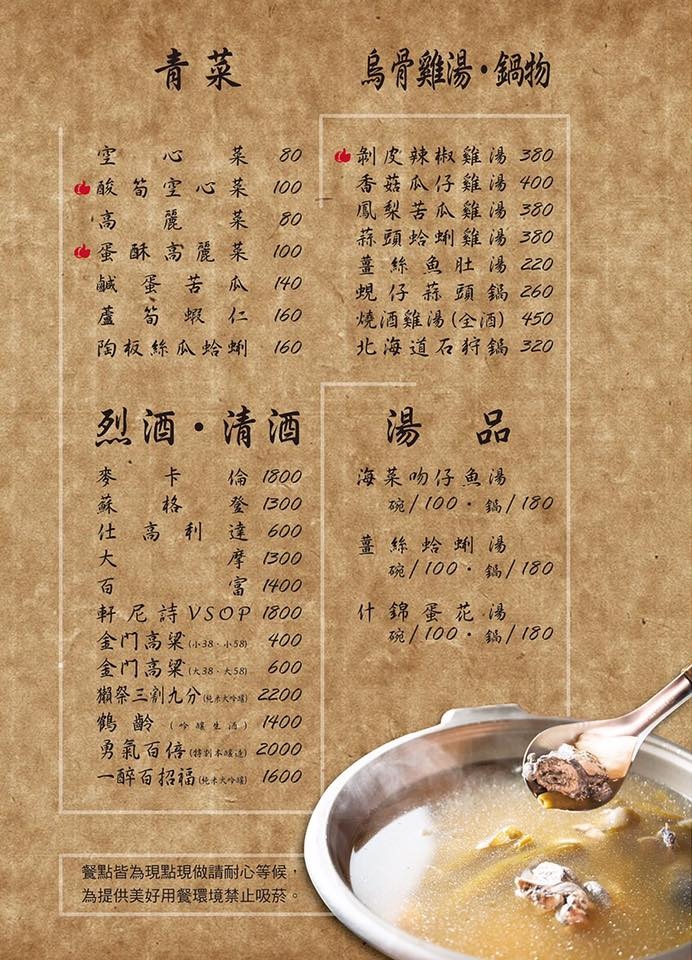 青菜
空心菜 80
酸筍空心菜 100
高麗菜 80
蛋酥高麗菜 100
鹹蛋苦瓜 140
蘆筍蝦仁 160
陶板絲瓜蛤蜊 160
烏骨雞湯・鍋物
剝皮辣椒雞湯 380
香菇瓜仔雞湯 400
鳳梨苦瓜雞湯 380
蒜頭蛤蜊雞湯 380
薑絲魚肚湯 220
蜆仔蒜頭鍋 260
燒酒雞湯(全酒) 450
北海道石狩鍋 320
烈酒・清酒
麥卡倫 1800
蘇格登 1300
仕高利達 600
大摩 1300
百富 1400
軒尼詩VSOP 1800
金門高粱(小38、小58) 400
金門高粱(大38、大58) 600
獺祭三割九分(純米大吟釀) 2200
鶴齡(吟釀生酒) 1400
勇氣百倍(特別本釀造) 2000
一醉百招福(純米大吟釀) 1600
湯品
海菜吻仔魚湯
碗/100・鍋/180
薑絲蛤蜊湯
碗/100・鍋/180
什錦蛋花湯
碗/100・鍋/180
餐點皆為現點現做請耐心等候，
為提供美好用餐環境禁止吸菸。